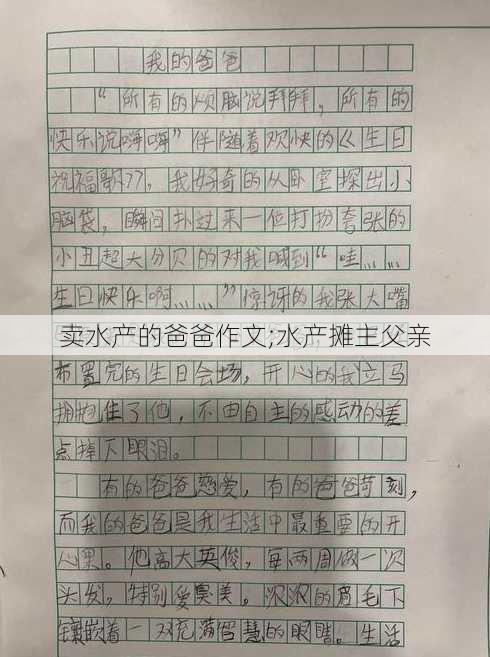 我的爸爸
“所有的烦脑说拜拜，所有的
快乐说嗨嗨”伴随着欢快的《生日
祝福歌》，我好奇的从卧室探出小
脑袋，瞬间扑过来一位打扮夸张的
小丑超大分贝的对我喊到“哇……
生日快乐啊……”惊讶的我张大嘴
卖水产的爸爸作文;水产摊主父亲
布置完的生日会场，开心的我立马
拥抱住了他，不由自主的感动的差
点掉下眼泪。
有的爸爸慈爱，有的爸爸苛刻，
而我的爸爸是我生活中最重要的开
心果。他高大英俊，每两周做一次
头发，特别爱臭美。浓浓的眉毛下
镶嵌着一双充满智慧的眼睛。生活